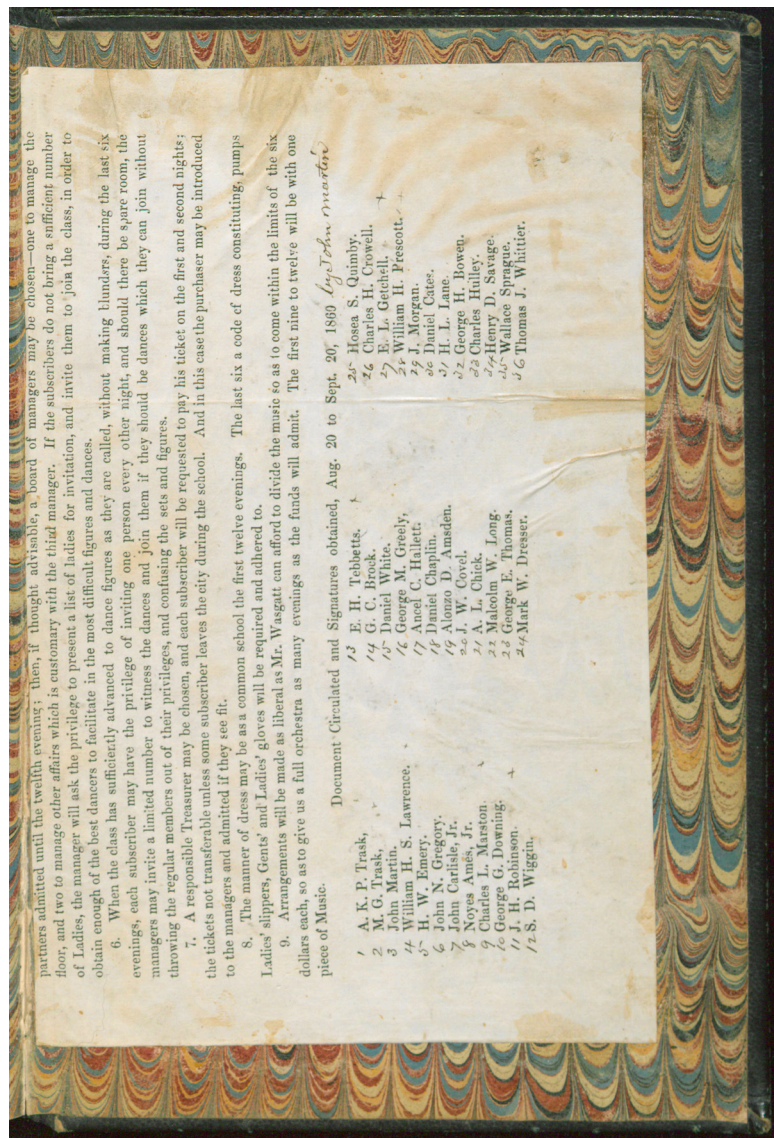 partners admitted until the twelfth evening; then, if thought advisable, a board of managers may be chosen—one to manage the
floor, and two to manage other affairs which is customary with the third manager. If the subscribers do not bring a snfficient number
of Ladies, the manager will ask the privilege to present a list of ladies for invitation, and invite them to join the class, in order to
obtain enough of the best dancers to facilitate in the most difficult figures and dances.
6. When the class has sufficiently advanced to dance figures as they are called, without making blunders, during the last six
evenings, each subscriber may have the privilege of inviting one person every other night, and should there be spare room, the
managers may invite a limited number to witness the dances and join them if they should be dances which they can join without
throwing the regular members out of their privileges, and confusing the sets and figures.
7. A responsible Treasurer may be chosen, and each subscriber will be requested to pay his ticket on the first and second nights;
the tickets not transferable unless some subscriber leaves the city during the school. And in this case the purchaser may be introduced
to the managers and admitted if they see fit.
8. The manner of dress may be as a common school the first twelve evenings. The last six a code of dress constituting, pumps
Ladies' slippers, Gents' and Ladies' gloves will be required and adhered to.
9. Arrangements will be made as liberal as Mr. Wasgatt can afford to divide the music so as to come within the limits of the six
dollars each, so as to give us a full orchestra as many evenings as the funds will admit. The first nine to twelve will be with one
piece of Music.
Document Circulated and Signatures obtained, Aug. 20 to Sept. 20, 1860 by John Martin
1 A. K. P. Trask,
2 M. G. Trask,
3 John Martin.
4 William H. S. Lawrence.
5 H. W. Emery.
6 John N. Gregory.
7 John Carlisle, Jr.
8 Noyes Ames, Jr.
9 Charles L. Marston.
10 George G. Downing.
11 J. H. Robinson.
12 S. D. Wiggin.
13 E. H. Tebbetts.
14 G. C. Brock.
15 Daniel White.
16 George M. Greely,
17 Ancel C. Hallett.
18 Daniel Chaplin.
19 Alonzo D. Amsden.
20 J. W. Covel.
21 A. L. Chick.
22 Malcolm W. Long.
23 George E. Thomas.
24 Mark W. Dresser.
25 Hosea S. Quimby.
26 Charles H. Crowell.
27 E. L. Getchell.
28 William H. Prescott.
29 J. Morgan.
30 Daniel Cates.
31 H. L. Lane.
32 George H. Bowen.
33 Charles Hulley.
34 Henry D. Savage.
35 Wallace Sprague.
36 Thomas J. Whittier.